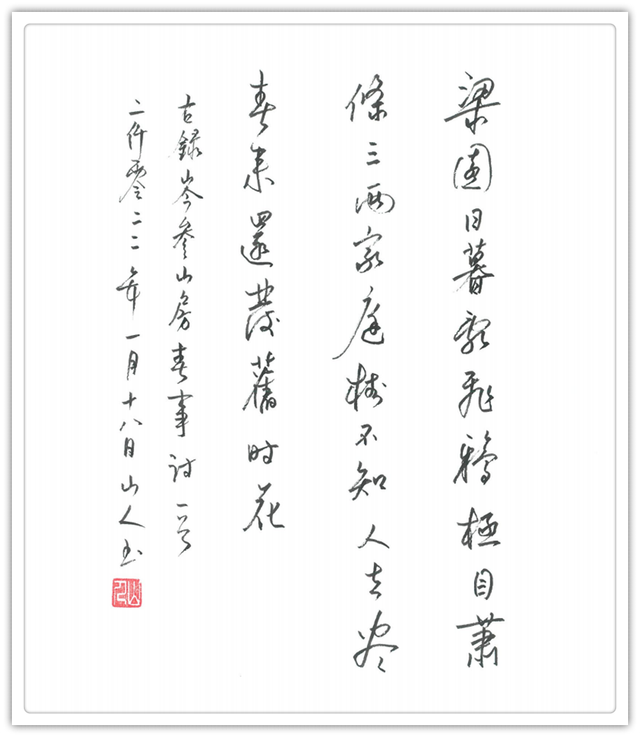 梁園日暮亂飛鴉極目蕭
條三两家庭樹不知人去尽
春來還發舊时花
古録岑參山房春事诗一首
二仟零二二年一月十八日山人书